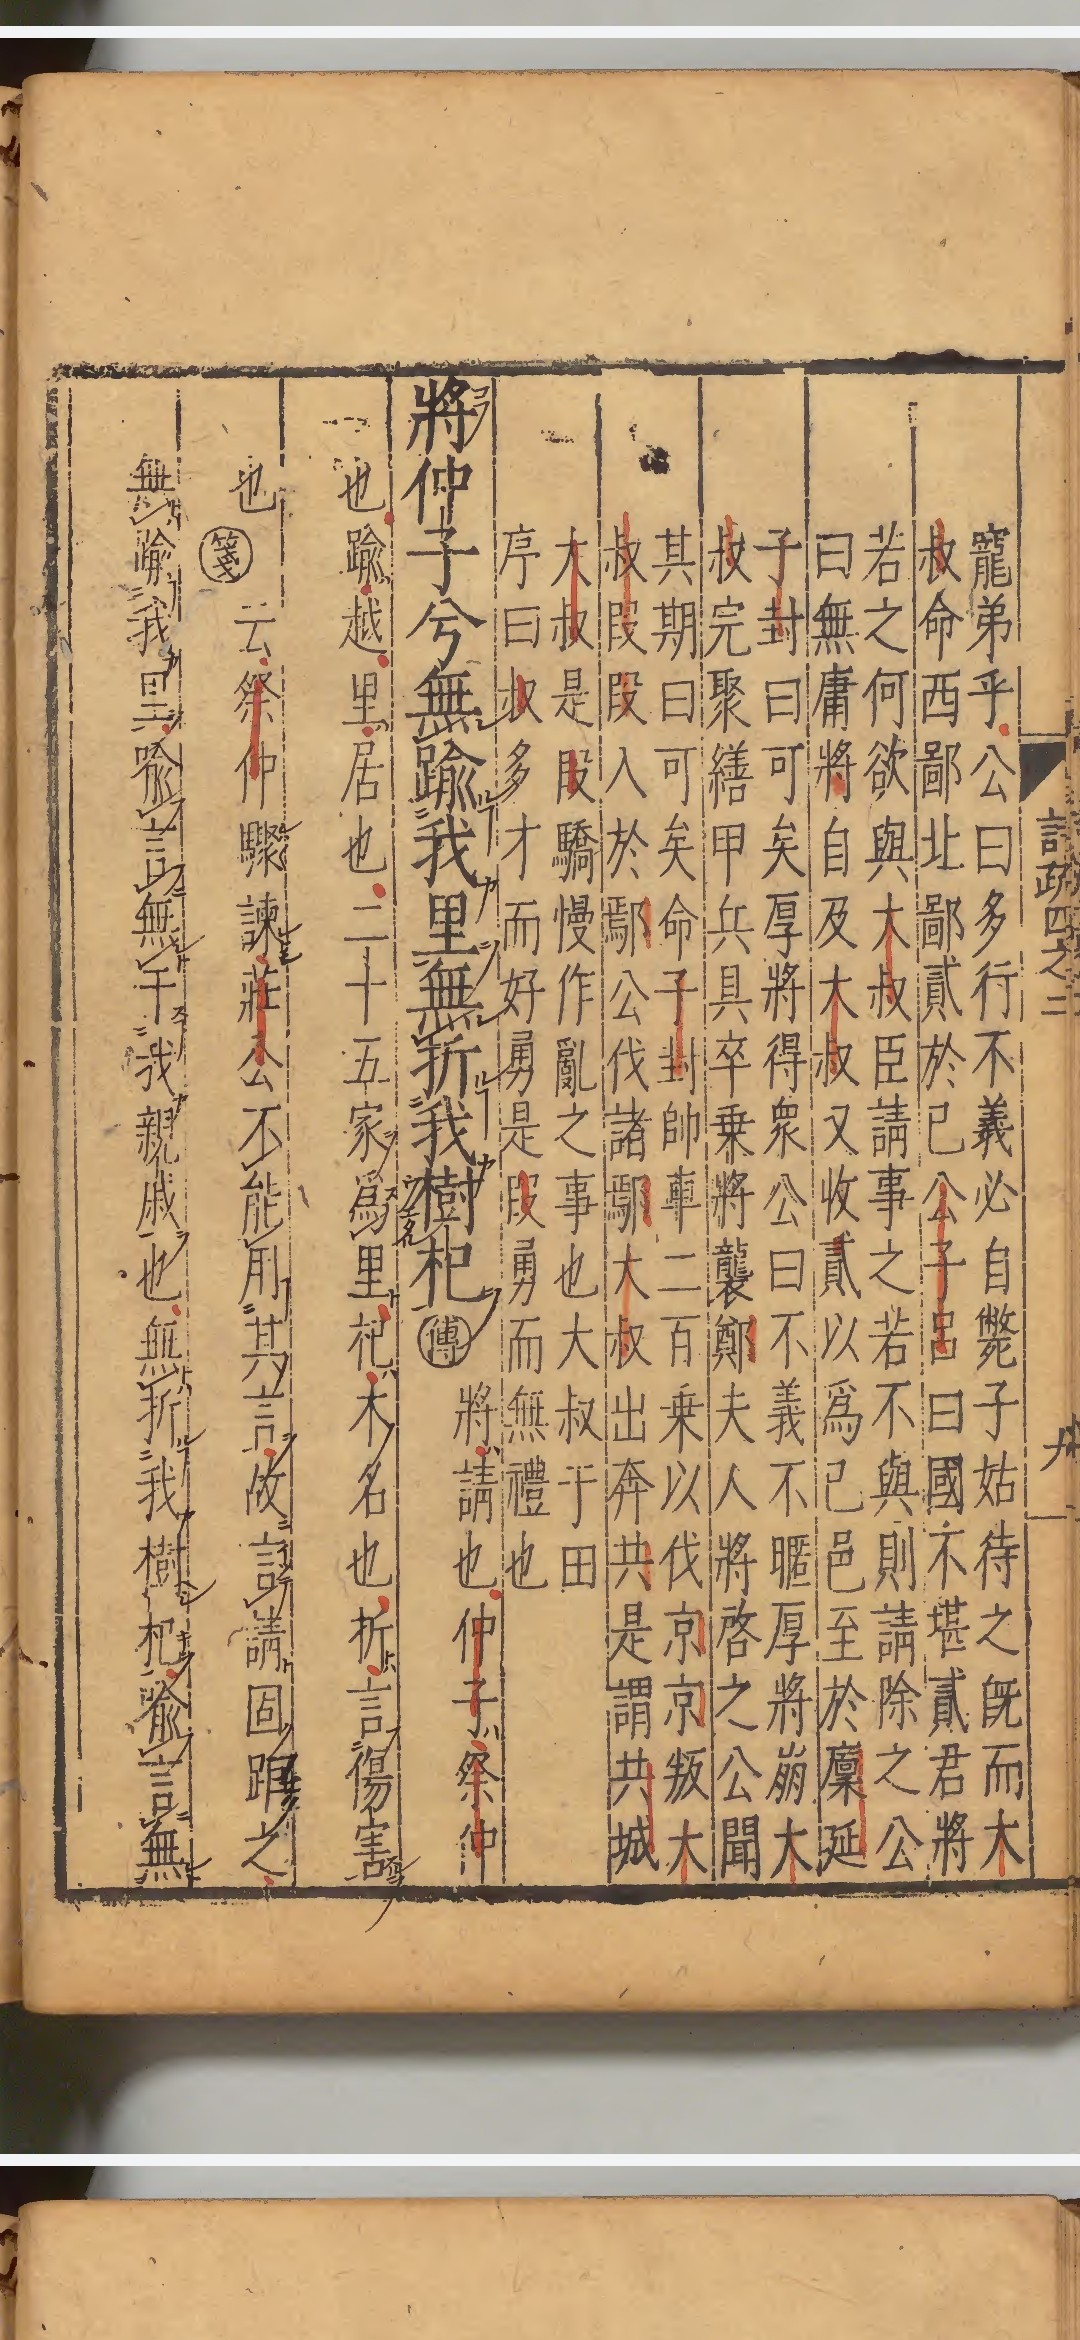 寵弟乎公曰多行不義必自斃子姑待之旣而大
叔命西鄙北鄙貳於己公子呂曰國不堪貳君將
若之何欲與大叔臣請事之若不與則請除之公
曰無庸將自及大叔又收貳以爲己邑至於廩延
子封曰可矣厚將得衆公曰不義不暱厚將崩大
叔完聚繕甲兵具卒乗將襲鄭夫人將啓之公聞
其期曰可矣命子封帥車二百乗以伐京京叛大
叔段段入於鄢公伐諸鄢大叔出奔共是謂共城
大叔是段驕慢作亂之事也大叔于田
序曰叔多才而好勇是段勇而無禮也
將仲子兮無踰我里無折我樹杞
傳
將請也仲子祭仲
也踰越里居也二十五家爲里杞木名也折言傷害
也
箋
云祭仲驟諫莊公不能用其言故言請固距之
無踰我里喻言無干我親戚也無折我樹杞喻言無
詩疏四之二
九